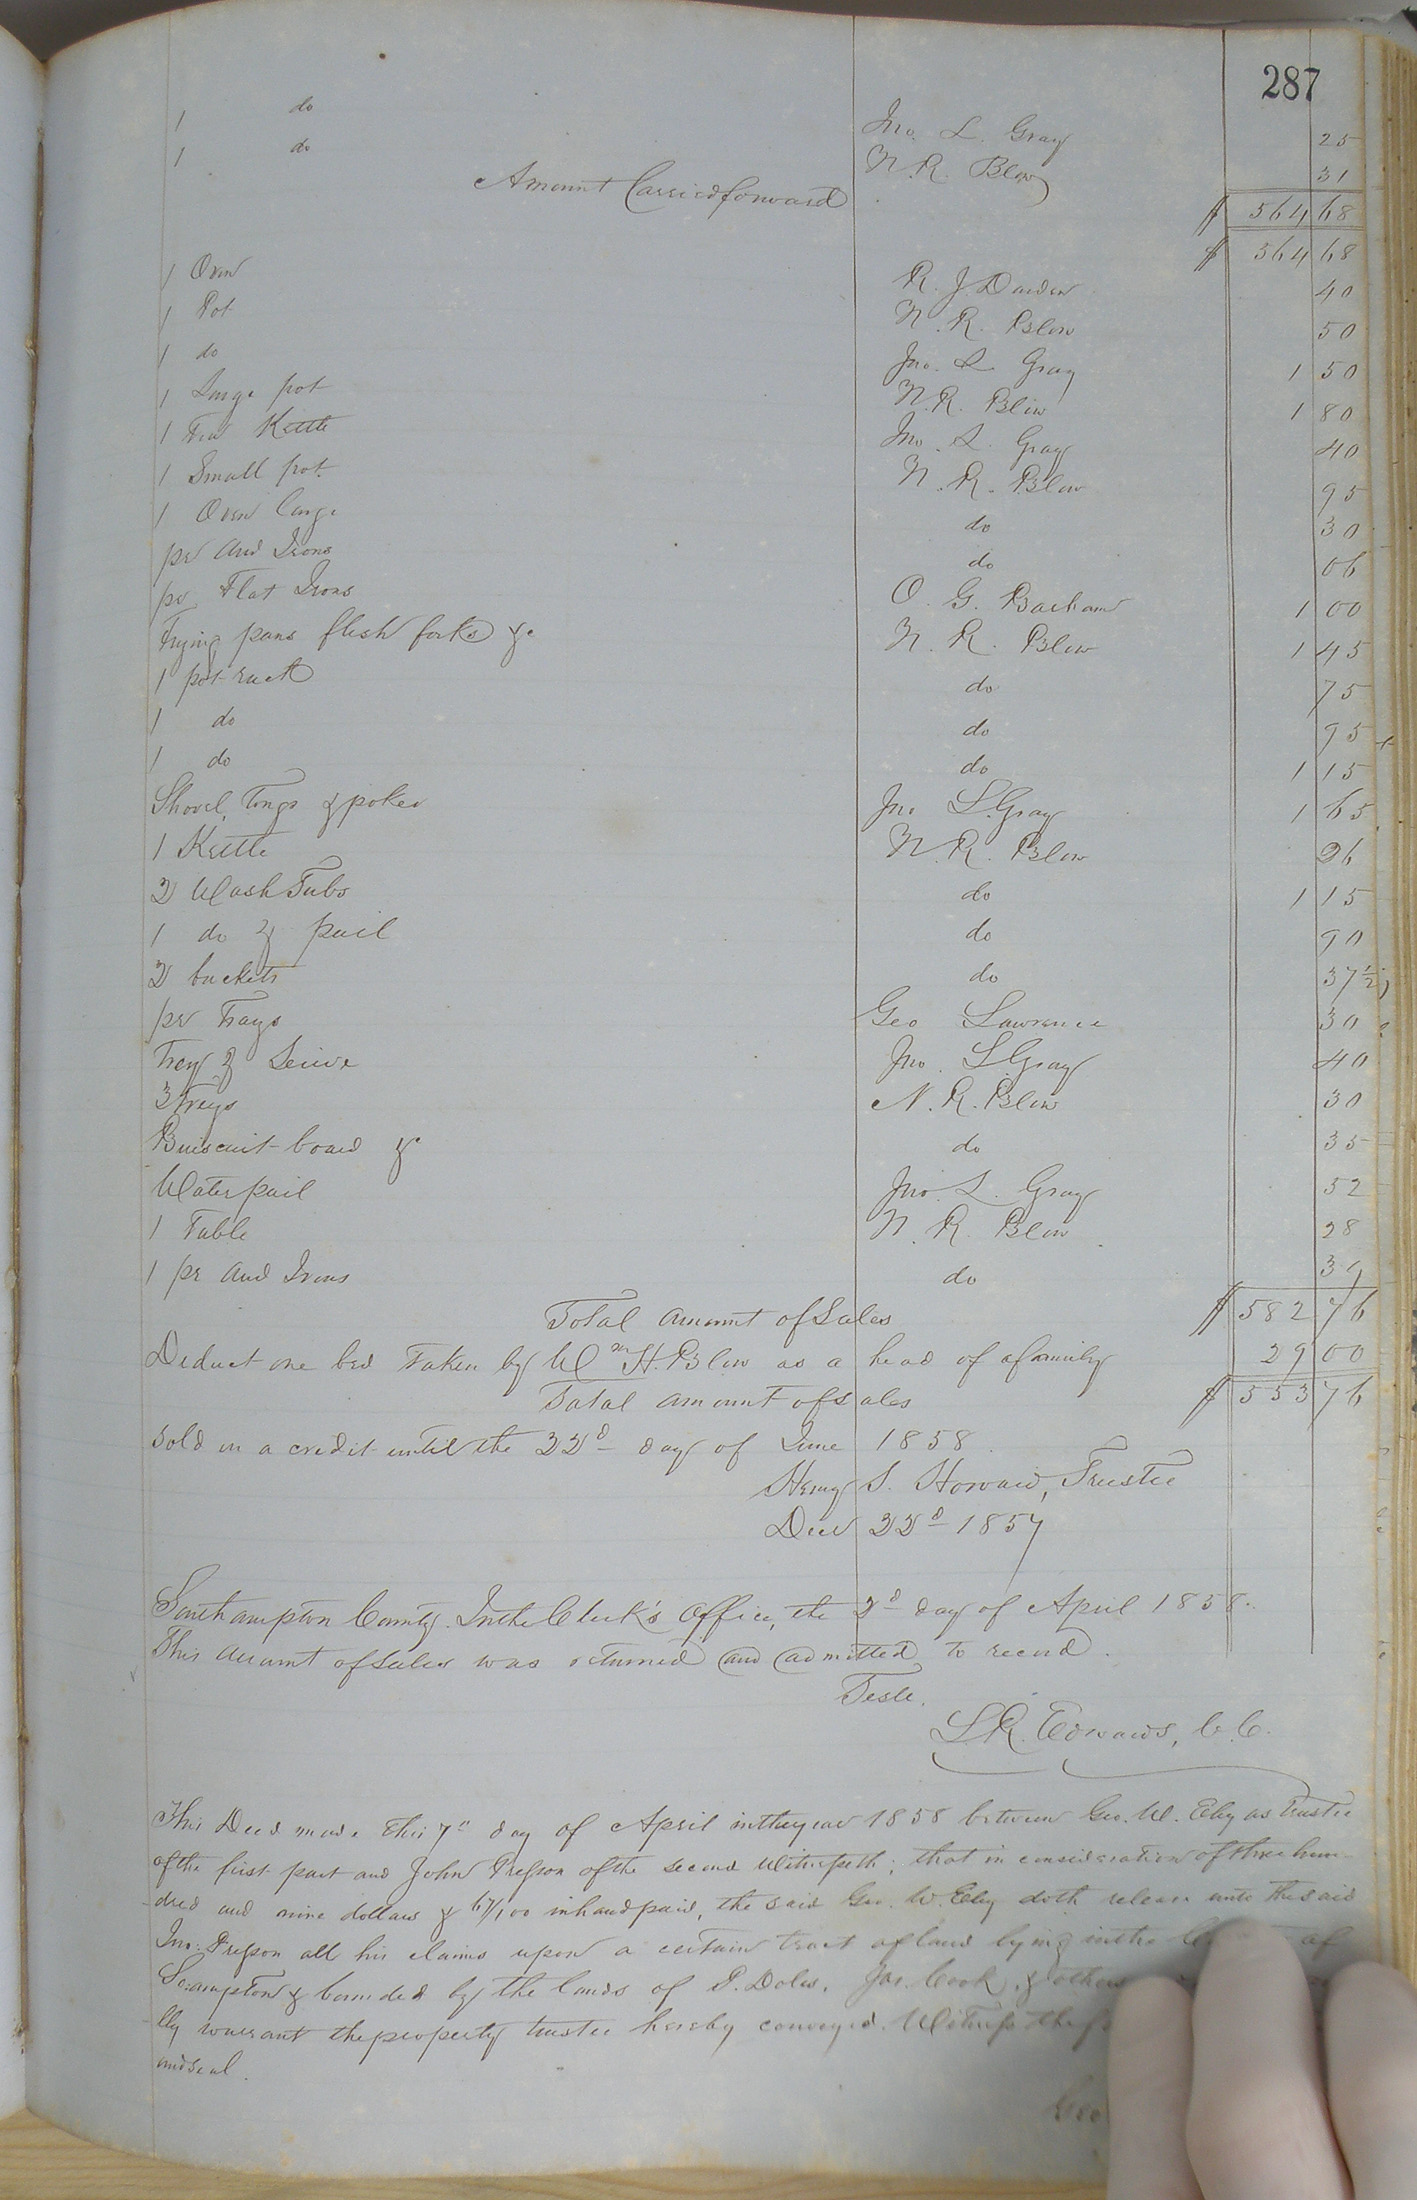 287
1 do Jno. L. Gray 25
1 do N. R. Blow 31
Amount Carried forward $ 564 68
$ 564 68
1 Oven R. J. Darden 40
1 Pot N. R. Blow 50
1 do Jno. L. Gray 1 50
1 Large pot N. R. Blow 1 80
1 Tea Kettle Jno. L. Gray 40
1 Small pot N. R. Blow 95
1 Oven large do 30
pr And Irons do 06
pr Flat Irons O. G. Barham 1 00
Frying pans flesh forks &c N. R. Blow 1 45
1 pot rack do 75
1 do do 95
1 do do 1 15
Shovel, Tongs & poker Jno L. Gray 1 65
1 Kettle N. R. Blow 26
2 Wash Tubs do 1 15
1 do & pail do 90
2 buckets do 37 1/2
pr Trays Geo Lawrence 30
Tray & Seive Jno. L. Gray 40
3 Trays N. R. Blow 30
Buiscuit board &c do 35
Water pail Jno. L. Gray 52
1 Table N. R. Blow 28
1 pr And Irons do
Total amount of Sales $ 582 76
Deduct one bed Taken by Wm H. Blow as a head of a family 29 00
Total amount of sales $ 553 76
Sold on a credit until the 22d day of June 1858.
Henry S. Howard, Trustee
Decr 22d 1857
Southampton County. In the Clerk's Office, the 2d day of April 1858.
This account of Sales was returned and admitted to record.
Teste.
L. R. Edwards, C. C.
This Deed made This 7th day of April in the year 1858 between Geo. W. Eley as Trustee
of the first part and John Pressson of the second Witnesseth; that in consideration of three hun-
-dred and nine dollars & 67/100 in hand paid, the said Geo. W. Eley doth release unto the said
Jno. Presson all his claims upon a certain tract of land lying in the of
So:ampton & bounded by the lands of P. Doles, Jas. Cook, & others
-lly warrant the property trustee hereby conveyed. Witness the
and seal.
Geo